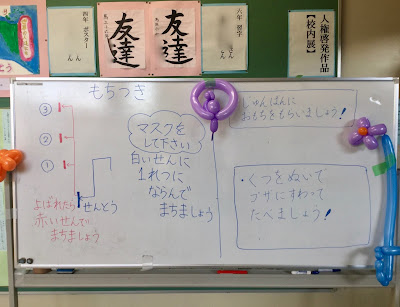 四年 ポスター
友達
友達
六年 習字
人権啓発作品
【校内展】
もちつき
③
②
①
せんとう
よばれたら
赤いせんで
まちましょう
マスクを
して下さい
白いせんに
1れつに
ならんで
まちましょう
じゅんばんに
おもちをもらいましょう!
・くつをぬいで
ゴザにすわって
たべましょう!